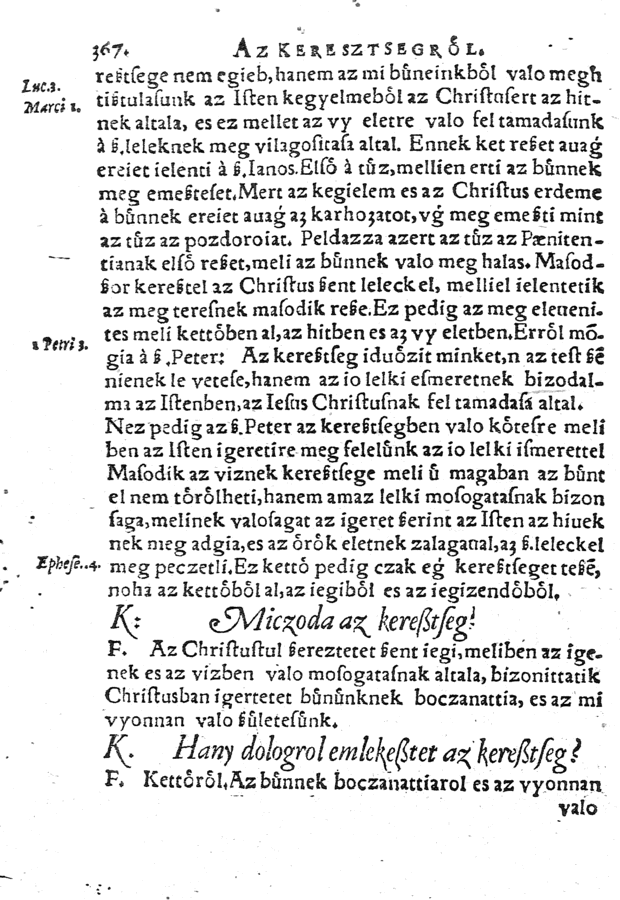 367. AZ KERESZTSEGRŐL.
reßtſege nem egieb, hanem az mi bűneinkből valo megh
Luc.3. tißtulaſunk az Iſten kegyelmeből az Chriſtuſert az hit-
Marci 1. nek altala, es ez mellet az vy eletre valo fel tamadaſunk
à ß.leleknek meg vilagoſitaſa altal. Ennek ket reßet auaǵ
ereiet ielenti à ß.Ianos. Elſő à tűz, mellien erti az bűnnek
meg emeßteſet. Mert az kegielem es az Chriſtus erdeme
à bűnnek ereiet auaǵ aʒ karhoʒatot, vǵ meg emeßti mint
az tűz az pozdoroiat. Peldazza azert az tűz az Pæniten-
tianak elſő reßet, meli az bűnnek valo meg halas. Maſod-
ßor kereßtel az Chriſtus ßent leleckel, melliel ielentetik
az meg tereſnek maſodik reße. Ez pedig az meg eleueni-
tes meli kettőben al, az hitben es aʒ vy eletben. Erről mō-
2 Petri 3. gia à ß.Peter: Az kereßtſeg iduőzit minket, n az teſt ßē
nienek le veteſe, hanem az io lelki eſmeretnek bizodal-
ma az Iſtenben, az Ieſus Chriſtuſnak fel tamadaſa altal.
Nez pedig az ß.Peter az kereßtſegben valo kőteſre meli
ben az Iſten igeretire meg felelűnk az io lelki iſmerettel
Maſodik az viznek kereßtſege meli ű magaban az bűnt
el nem tőrőlheti, hanem amaz lelki moſogataſnak bizon
ſaga, melinek valoſagat az igeret ßerint az Iſten az hiuek
nek meg adgia, es az őrők eletnek zalagaual, aʒ ß.leleckel
Epheſe..4. meg peczetli. Ez kettő pedig czak eǵ kereßtſeget teßē,
noha az kettőből al, az iegiből es az iegizendőből.
K: Miczoda az kereßtſeg?
F. Az Chriſtuſtul ßereztetet ßent iegi, meliben az ige-
nek es az vizben valo moſogataſnak altala, bizonittatik
Chriſtusban igertetet bűnűnknek boczanattia, es az mi
vyonnan valo ßűleteſűnk.
K. Hany dologrol emlekeßtet az kereßtſeg?
F. Kettőről, Az bűnnek boczanattiarol es az vyonnan
valo